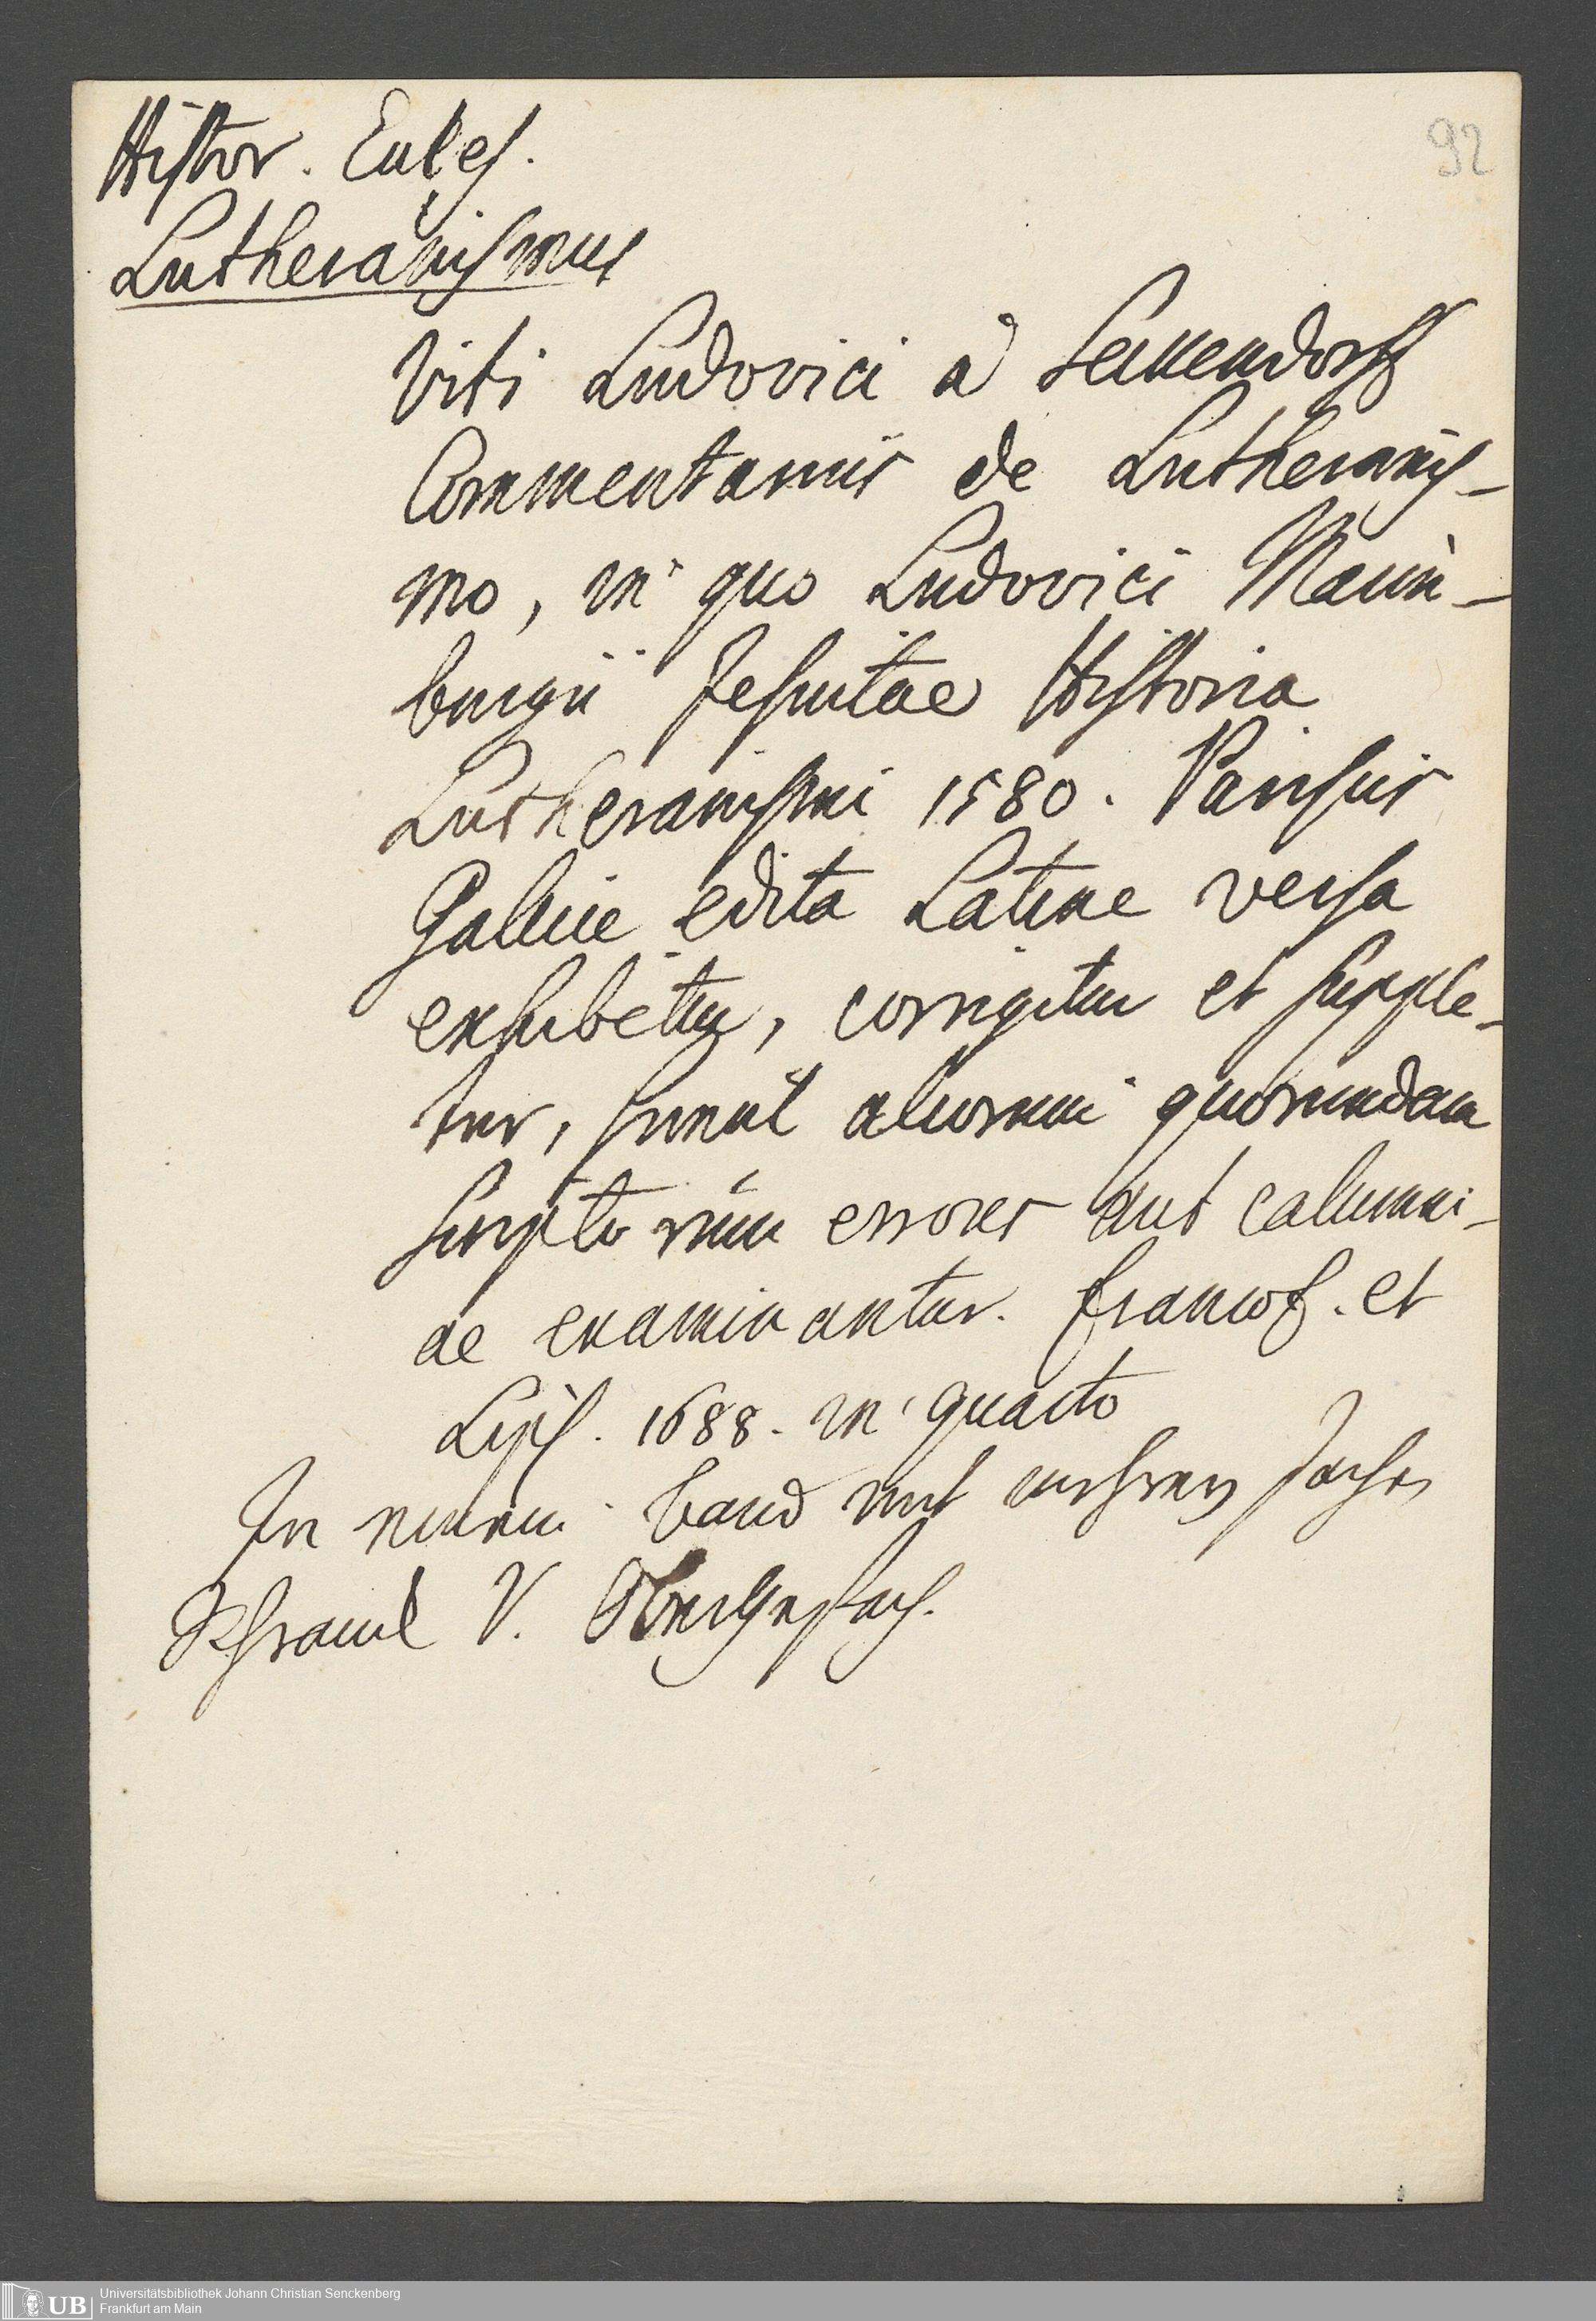 92
Histor. Eccles.
Lutheranismus
Viti Ludovici a Seckendorff
Commentarius de Lutheranis-
mo, in quo Ludovici Maim-
burgii Jesuitae Historia
Lutheranismi 1580. Parisiis
Gallice edita Latine versa
exhibetur, corrigitur et supple-
tur, simul aliorum quorundam
scriptorum errores aut calumni-
ae examinantur. Francof. et
Lips. 1688. in quarto
In einem Band mit
V.
UB
Universitätsbibliothek Johann Christian Senckenberg
Frankfurt am Main